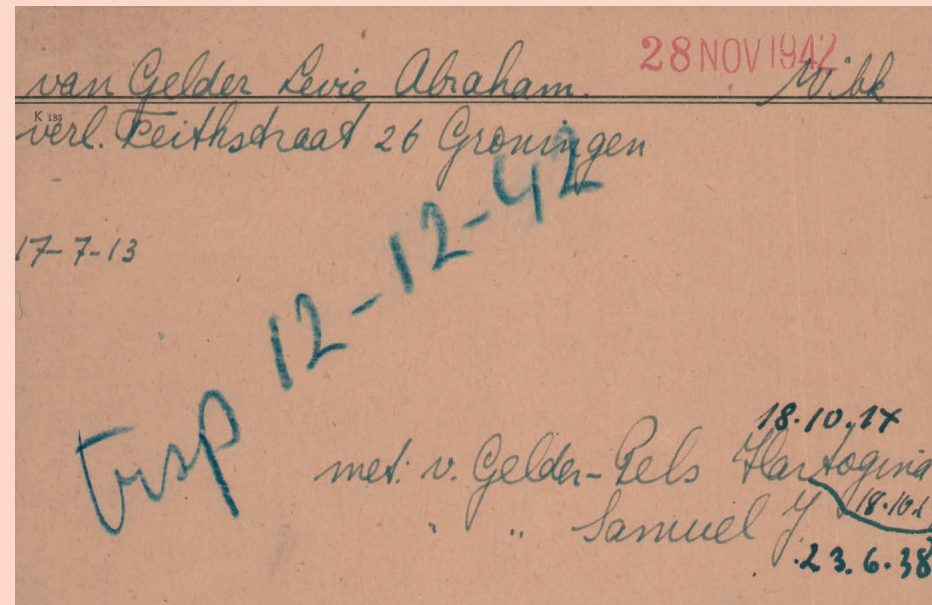 28 NOV 1942
van Gelder Levie Abraham.
K 185
verl. Feithstraat 26 Groningen
17-7-13
trsp 12-12-42
18.10.17
met: v. Gelder-Pels Hartogina
" " Samuel J
18.10.1
23.6.38